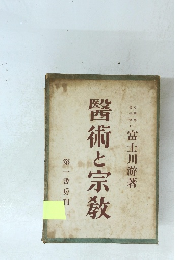 富士川游著
醫術と宗教
第一書房刊